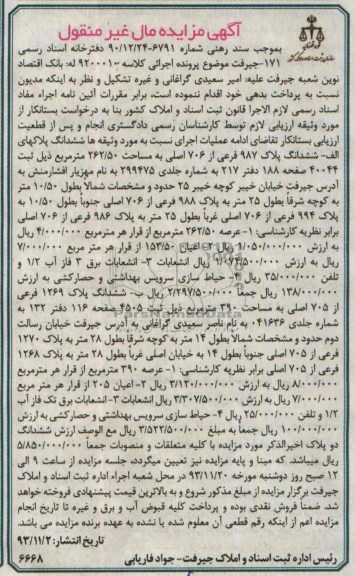 آگهی مزایده مال غیر منقول
بموجب سند رهنی شماره ۶۷۹۱-۹۰/۱۲/۲۴ دفترخانه اسناد رسمی
۱۷۱-جیرفت موضوع پرونده اجرائی کلاسه ۹۲۰۰۰۱۰ له: بانک اقتصاد
نوین شعبه جیرفت علیه: امیر سعیدی گراغانی و غیره تشکیل و نظر به اینکه مدیون
نسبت به پرداخت بدهی خود اقدام ننموده است، برابر مقررات آئین نامه اجراء مفاد
اسناد رسمی لازم الاجرا قانون ثبت اسناد و املاک کشور بنا به درخواست بستانکار از
مورد وثیقه ارزیابی لازم توسط کارشناسان رسمی دادگستری انجام و پس از قطعیت
ارزیابی بستانکار تقاضای ادامه عملیات اجرای نسبت به مورد وثیقه ها ششدانگ پلاکهای
الف- ششدانگ پلاک ۹۸۷ فرعی از ۷۰۶ اصلی به مساحت ۲۶۲/۵۰ مترمربع ذیل ثبت
۴۰۰۴۴ صفحه ۱۸۸ دفتر ۲۱۷ به شماره جلدی ۲۹۹۴۷۵ به نام مهزیار افشارمنش به
آدرس جیرفت خیابان خیبر کوچه خیبر ۲۵ حدود و مشخصات شمالاً بطول ۱۰/۵۰ متر
به کوچه شرقاً بطول ۲۵ متر به پلاک ۹۸۸ فرعی از ۷۰۶ اصلی جنوباً بطول ۱۰/۵۰ به
پلاک ۹۹۴ فرعی از ۷۰۶ اصلی غرباً بطول ۲۵ متر به پلاک ۹۸۶ فرعی از ۷۰۶ اصلی
برابر نظریه کارشناسی: ۱- عرصه ۲۶۲/۵۰ مترمربع از قرار هر مترمربع ۴/۰۰۰/۰۰۰ ریال
به ارزش ۱/۰۵۰/۰۰۰/۰۰۰ ریال ۲- اعیان ۱۵۳/۵۰ از قرار هر متر مربع ۷/۰۰۰/۰۰۰
ریال به ارزش ۱/۰۷۴/۵۰۰/۰۰۰ ریال انشعابات ۳- انشعابات برق ۳ فاز آب ۱/۲ و
تلفن ۳۵/۰۰۰/۰۰۰ ریال ۴- حیاط سازی سرویس بهداشتی و حصارکشی به ارزش
۱۳۸/۰۰۰/۰۰۰ ریال جمعاً ۲/۲۹۷/۵۰۰/۰۰۰ ریال ب- ششدانگ پلاک ۱۲۶۹ فرعی
از ۷۰۵ اصلی به مساحت ۳۹۰ مترمربع ذیل ثبت صفحه ۱۱۶ دفتر ۱۳۲ به
شماره جلدی ۰۴۱۶۳۶ به نام ناصر سعیدی گراغانی به آدرس جیرفت خیابان رسالت
دوم حدود و مشخصات شمالاً بطول ۱۴ متر به کوچه شرقاً بطول ۲۸ متر به پلاک ۱۲۷۰
فرعی از ۷۰۵ اصلی جنوباً بطول ۱۴ به خیابان اصلی غرباً بطول ۲۸ متر به پلاک ۱۲۶۸
فرعی از ۷۰۵ اصلی برابر نظریه کارشناسی: ۱- عرصه ۳۹۰ مترمربع از قرار هر مترمربع
۸/۰۰۰/۰۰۰ ریال به ارزش ۳/۱۲۰/۰۰۰/۰۰۰ ریال ۲- اعیان ۲۰۵ از قرار هر متر مربع
ریال به ارزش ریال انشعابات ۳- انشعابات برق تک فاز آب
۱/۲ و تلفن ۲۵/۰۰۰/۰۰۰ ریال ۴- حیاط سازی سرویس بهداشتی و حصارکشی به ارزش
۱۰۰/۰۰۰/۰۰۰ ریال جمعاً به مبلغ ۳/۵۲۲/۵۰۰/۰۰۰ ریال مع الوصف ارزش ششدانگ
دو پلاک اخیرالذکر مورد مزایده با کلیه متعلقات و منصوبات جمعاً ۵/۸۵۰/۰۰۰/۰۰۰
ریال میباشد. که مبنا و پایه مزایده نیز تعیین میگردد، جلسه مزایده از ساعت ۹ الی
۱۲ صبح روز دوشنبه مورخه ۹۳/۱۱/۲۰ در محل شعبه اجراء اداره ثبت اسناد و املاک
جیرفت برگزار مزایده از مبلغ مذکور شروع و به بالاترین قیمت پیشنهادی فروخته خواهد
شد. ضمناً فروش نقدی بوده و پرداخت کلیه قبوض آب و برق و غیره تا تاریخ انجام
مزایده اعم از اینکه رقم قطعی آن معلوم شده یا نشده به عهده برنده مزایده می باشد.
تاریخ انتشار: ۹۳/۱۱/۲
رئیس اداره ثبت اسناد و املاک جیرفت- جواد فاریابی
۶۶۶۸